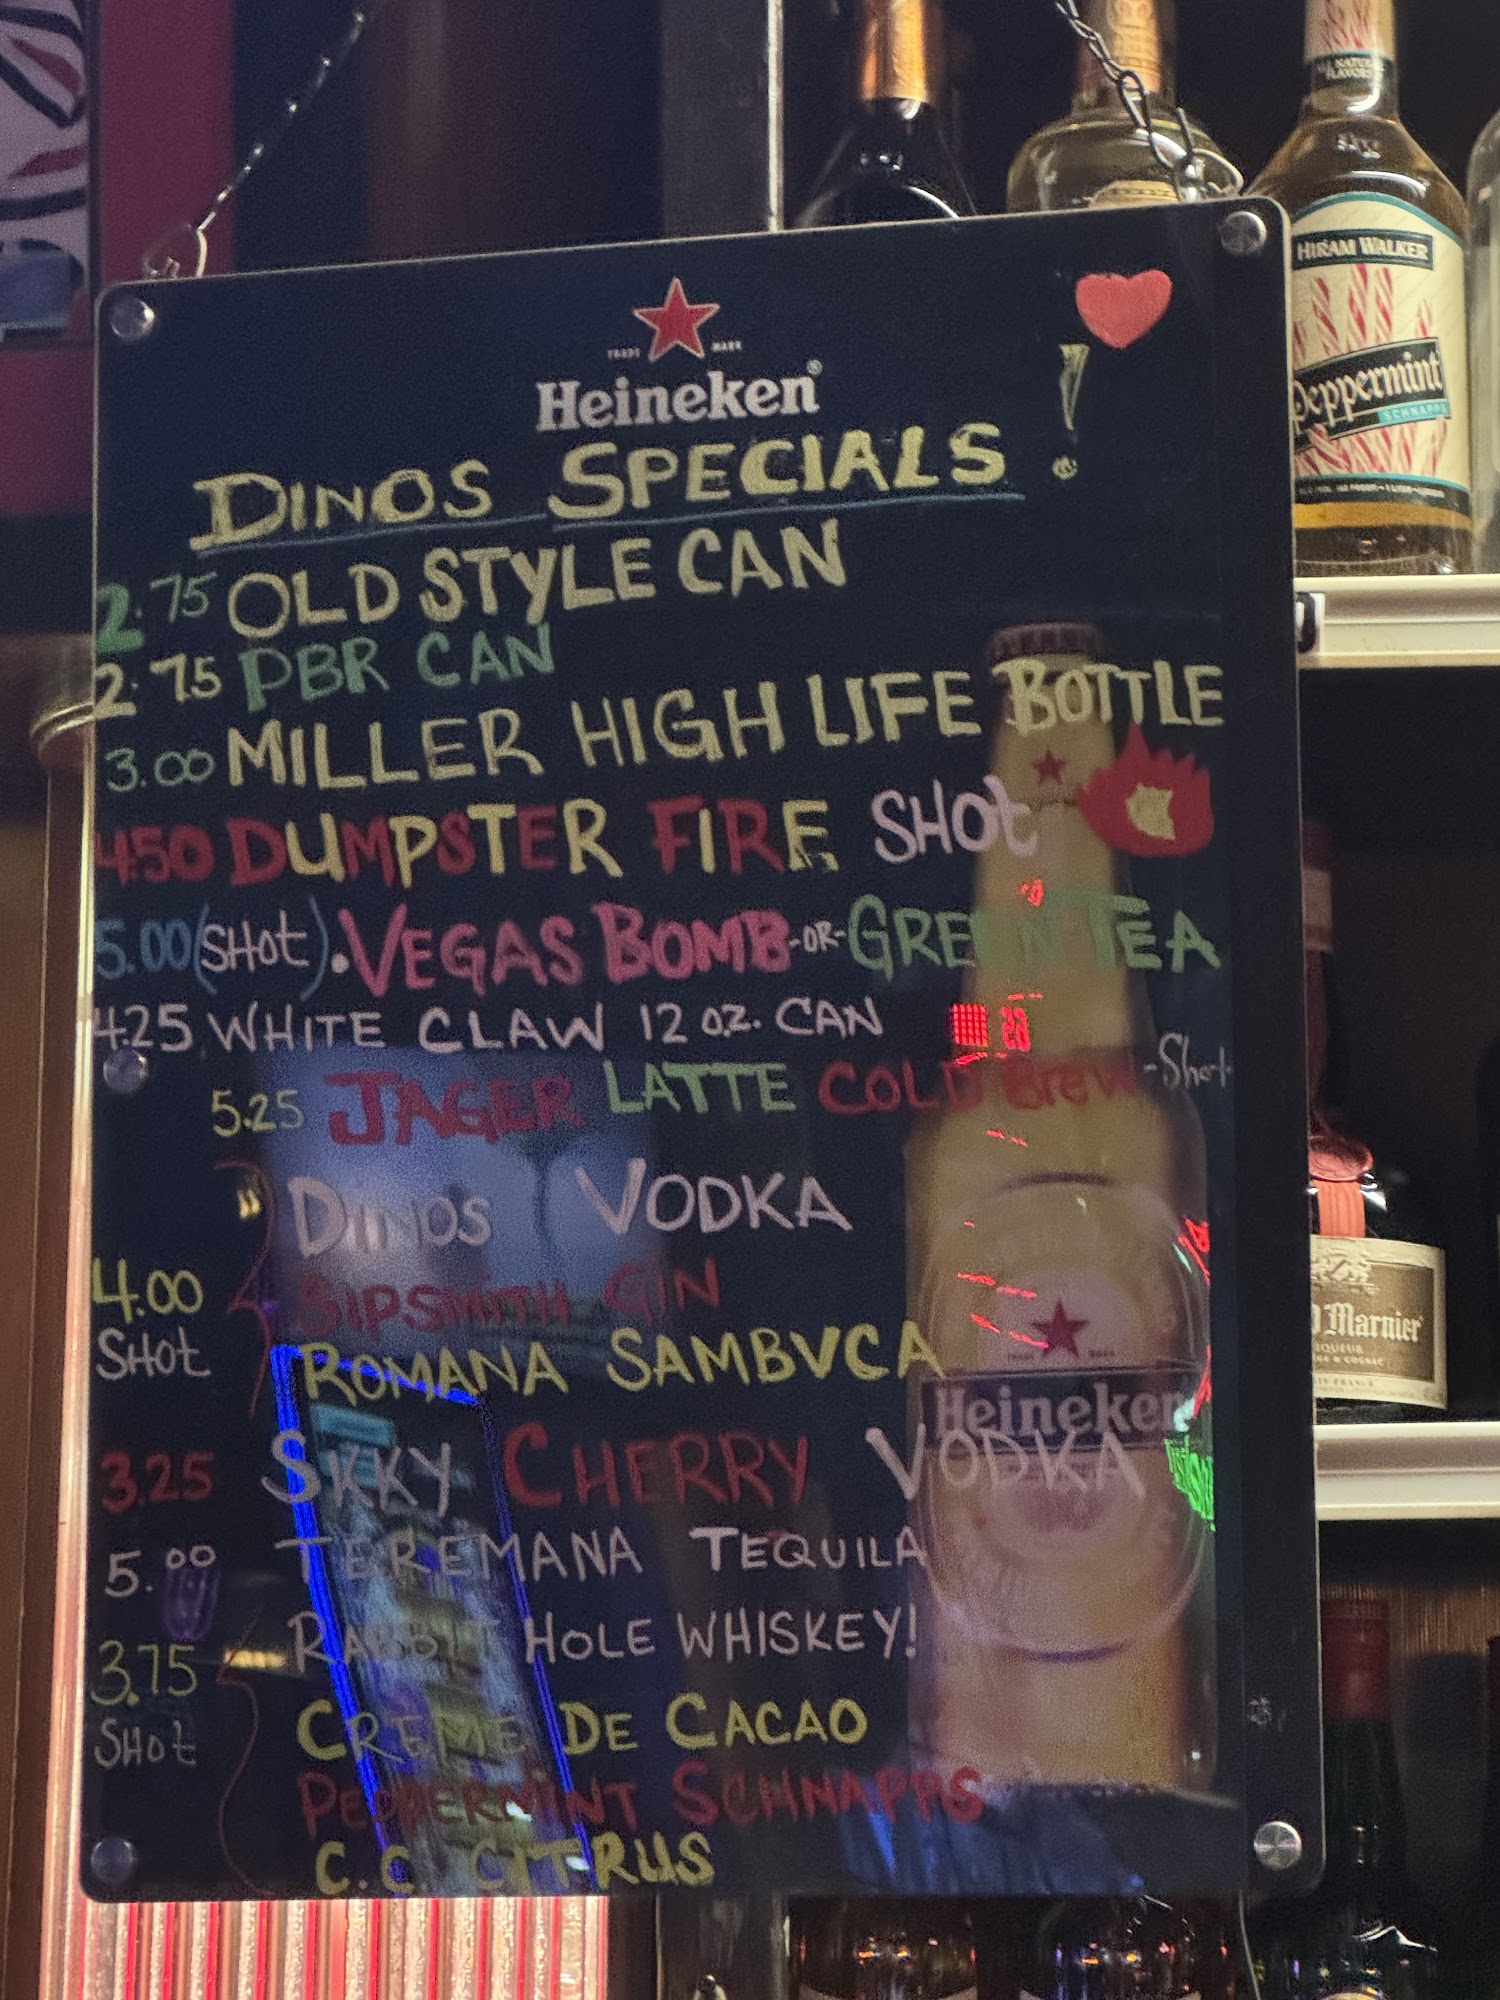 ALL NATURAL FLAVORS
HIRAM WALKER
Peppermint
SCHNAPPS
TRADE MARK
Heineken®
DINOS SPECIALS !
2.75 OLD STYLE CAN
2.75 PBR CAN
3.00 MILLER HIGH LIFE BOTTLE
4.50 DUMPSTER FIRE SHOT
5.00 (SHOT). VEGAS BOMB -OR- GREEN TEA
4.25 WHITE CLAW 12 OZ. CAN
5.25 JAGER LATTE COLD Brew -Shot-
DINOS VODKA
4.00 SIPSMITH GIN
SHOT ROMANA SAMBUCA
3.25 SKKY CHERRY VODKA
5.00 TEREMANA TEQUILA
RABBIT HOLE WHISKEY!
3.75
SHOT CREME DE CACAO
PEPPERMINT SCHNAPPS
C.C. CITRUS
TRADE MARK
Heineken
Marnier
LIQUEUR